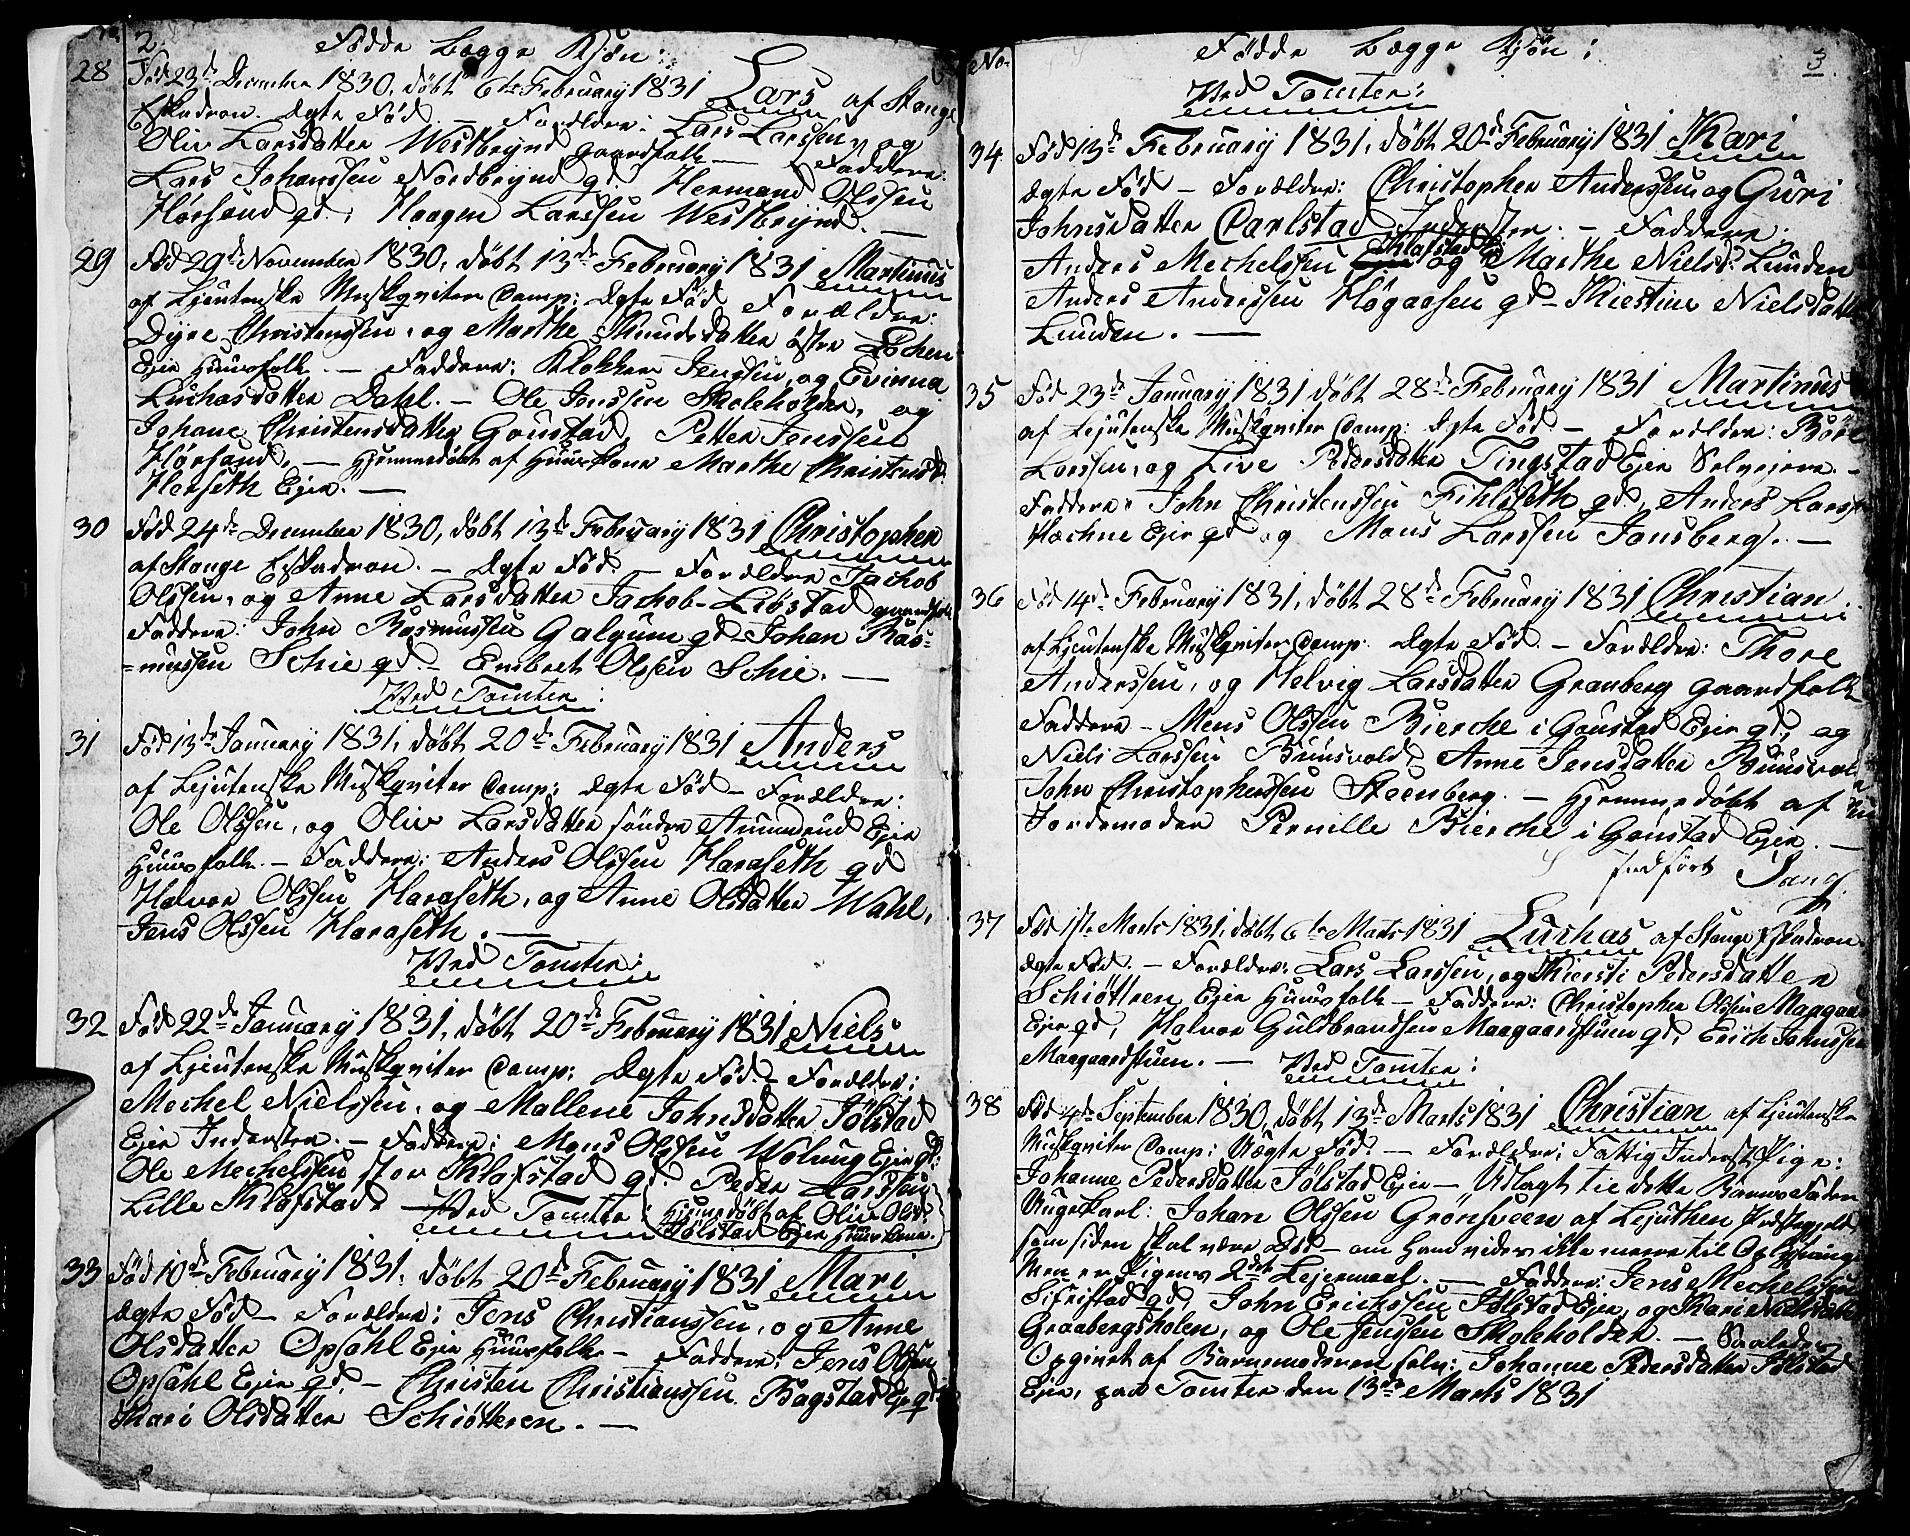 No. 2. Födde Begge Kjøn:
28 Fød 23de December 1830, døbt 6te February 1831 Lars af Stange
Eskadron. Ægte Fød. — Forældre: Lars Larssen, og
Oliv Larsdatter Westbrynd gaardfolk — Faddere:
Lars Johanssen Nordbrynd gd. Hermand Olssen
Hørsand gd, Haagen Larssen Westbrynd. —
29 Fød 29de November 1830, døbt 13de February 1831 Martinus
af Lejutenske Muskqviter Comp: Ægte Fød Forældre:
Dyre Christenssen, og Marthe Amundsdatter östre Lochen
Ejer Huusfolk. — Faddere: Klokker Jenssen, og Evinna
Luchasdatter Dahl. — Ole Jenssen Skoleholder, og
Johane Christensdatter Gaustad, Petter Jenssen
Hørsand, — Hjemmedøbt af Huuskone Marthe Christensd
Herseth Ejer. —
30 Fød 24de December 1830, døbt 13de February 1831 Christopher
af Stange Eskadron. — Ægte Fød — Forældre Jachob
Olssen, og Anne Larsdatter Jachob-Liøstad gaardfolk
Faddere: John Rasmussen Galgum gd — Johan Ras-
=mussen Schie gd. — Embret Olssen Schie. —
Ved Tomter:
31 Fød 13de January 1831, døbt 20de February 1831 Anders
af Lejutenske Muskqviter Comp: Ægte Fød — Forældre:
Ole Olssen, og Oliv Larsdatter söndre Ammerud Ejer
Huusfolk. — Faddere: Anders Olssen Haraseth gd
Halvor Olssen Haraseth, og Anne Olsdatter Wahl,
Jens Olssen Haraseth. —
Ved Tomter:
32 Fød 22de January 1831, døbt 20de February 1831 Niels
af Lejutenske Muskqviter Comp: Ægte Fød. — Forældre:
Mechel Nielssen, og Mallene Johnsdatter Jølstad
Ejer Inderster. — Faddere: Mons Olssen Wolung Ejer gd:
Ole Mechelssen stor Sklafstad gd. Peder Larssen
Lille Sklafstad. — Ved Tomter: Hjemmedøbt af Oliv Olsd:
Jølstad Ejer Huuskone.
33 Fød 10de February 1831, døbt 20de February 1831 Mari
Ægte Fød — Forældre: Jens Christianssen, og Anne
Olsdatter Opsahl Ejer Huusfolk — Faddere: Jens Olssen
Opsahl Ejer gd, — Christen Christianssen Bagstad Ejer gd
Mari Olsdatter Schiötteren. —
No. Födde Begge Kjøn: 3.
Ved Tomter:
34 Fød 13de February 1831, døbt 20de February 1831 Kari
Ægte Fød — Forældre: Christopher Anderssen og Guri
Johnsdatter Carlstad Inderster. — Faddere:
Anders Mechelssen Sklafstad og Marthe Nielsd: Lunden
Anders Anderssen Høgaasen gd — Kiestine Nielsdatter
Lunden. —
35 Fød 23de January 1831 døbt 28de February 1831 Martinus
af Lejutenske Muskqviter Comp: Ægte Fød. — Forældre: Böre
Larssen, og Live Pedersdatter Tingstad Ejer Selvejere. —
Faddere: John Christenssen Fihlseth gd, Anders Larssen
Hachne Ejer gd og Mons Larssen Jonsberg. —
36 Fød 14de February 1831, døbt 28de February 1831 Christian
af Lejutenske Muskqviter Comp: Ægte Fød. — Forældre: Thore
Anderssen, og Helvig Larsdatter Granberg gaardfolk
Faddere — Mens Olssen Bierche i Gaustad Ejer gd, og
Niels Larssen Bunsvold, Anne Jensdatter Bunsvold
John Christopherssen Steenberg. — Hjemmedøbt af
Jordemoder Pernille Bierche i Gaustad Ejer. —
Indført Sang.
37 Fød 1ste Marts 1831, døbt 6te Marts 1831 Luchas af Stange Eskadron.
Ægte Fød. — Forældre: Lars Larssen, og Kiersti Pedersdatter
Schiöttren Ejer Huusfolk — Faddere: Christopher Olssen Maagaard
Ejer gd, Halvor Guldbrandsen Maagaardstuen gd, Erich Johnssen
Maagaardstuen. — Ved Tomter:
38 Fød 4de September 1830, døbt 13de Marts 1831 Christian af Lejutenske
Muskqviter Comp: Uægte Fød. — Forældre: Fattig Inderst Pige:
Johanne Pedersdatter Jølstad Ejer — Udlagt til dette Barns Fader
Ungekarl: Johan Olssen Grönsveen af Lejuthen Præstegjeld,
som siden skal være Død — om hand vides ikke meere til Oplysning
Men er Pigens 2det Lejermaal. — Faddere: Jens Mechelssen
Sifristad gd, John Erickssen Jølstad Ejer, og Mari Nielsdatter
Graabergsholen, og Ole Jenssen Skoleholder. — Saaledes
Opginet af Barnemoderen selv: Johanne Pedersdatter Jølstad
Ejer, paa Tomter den 13de Marts 1831